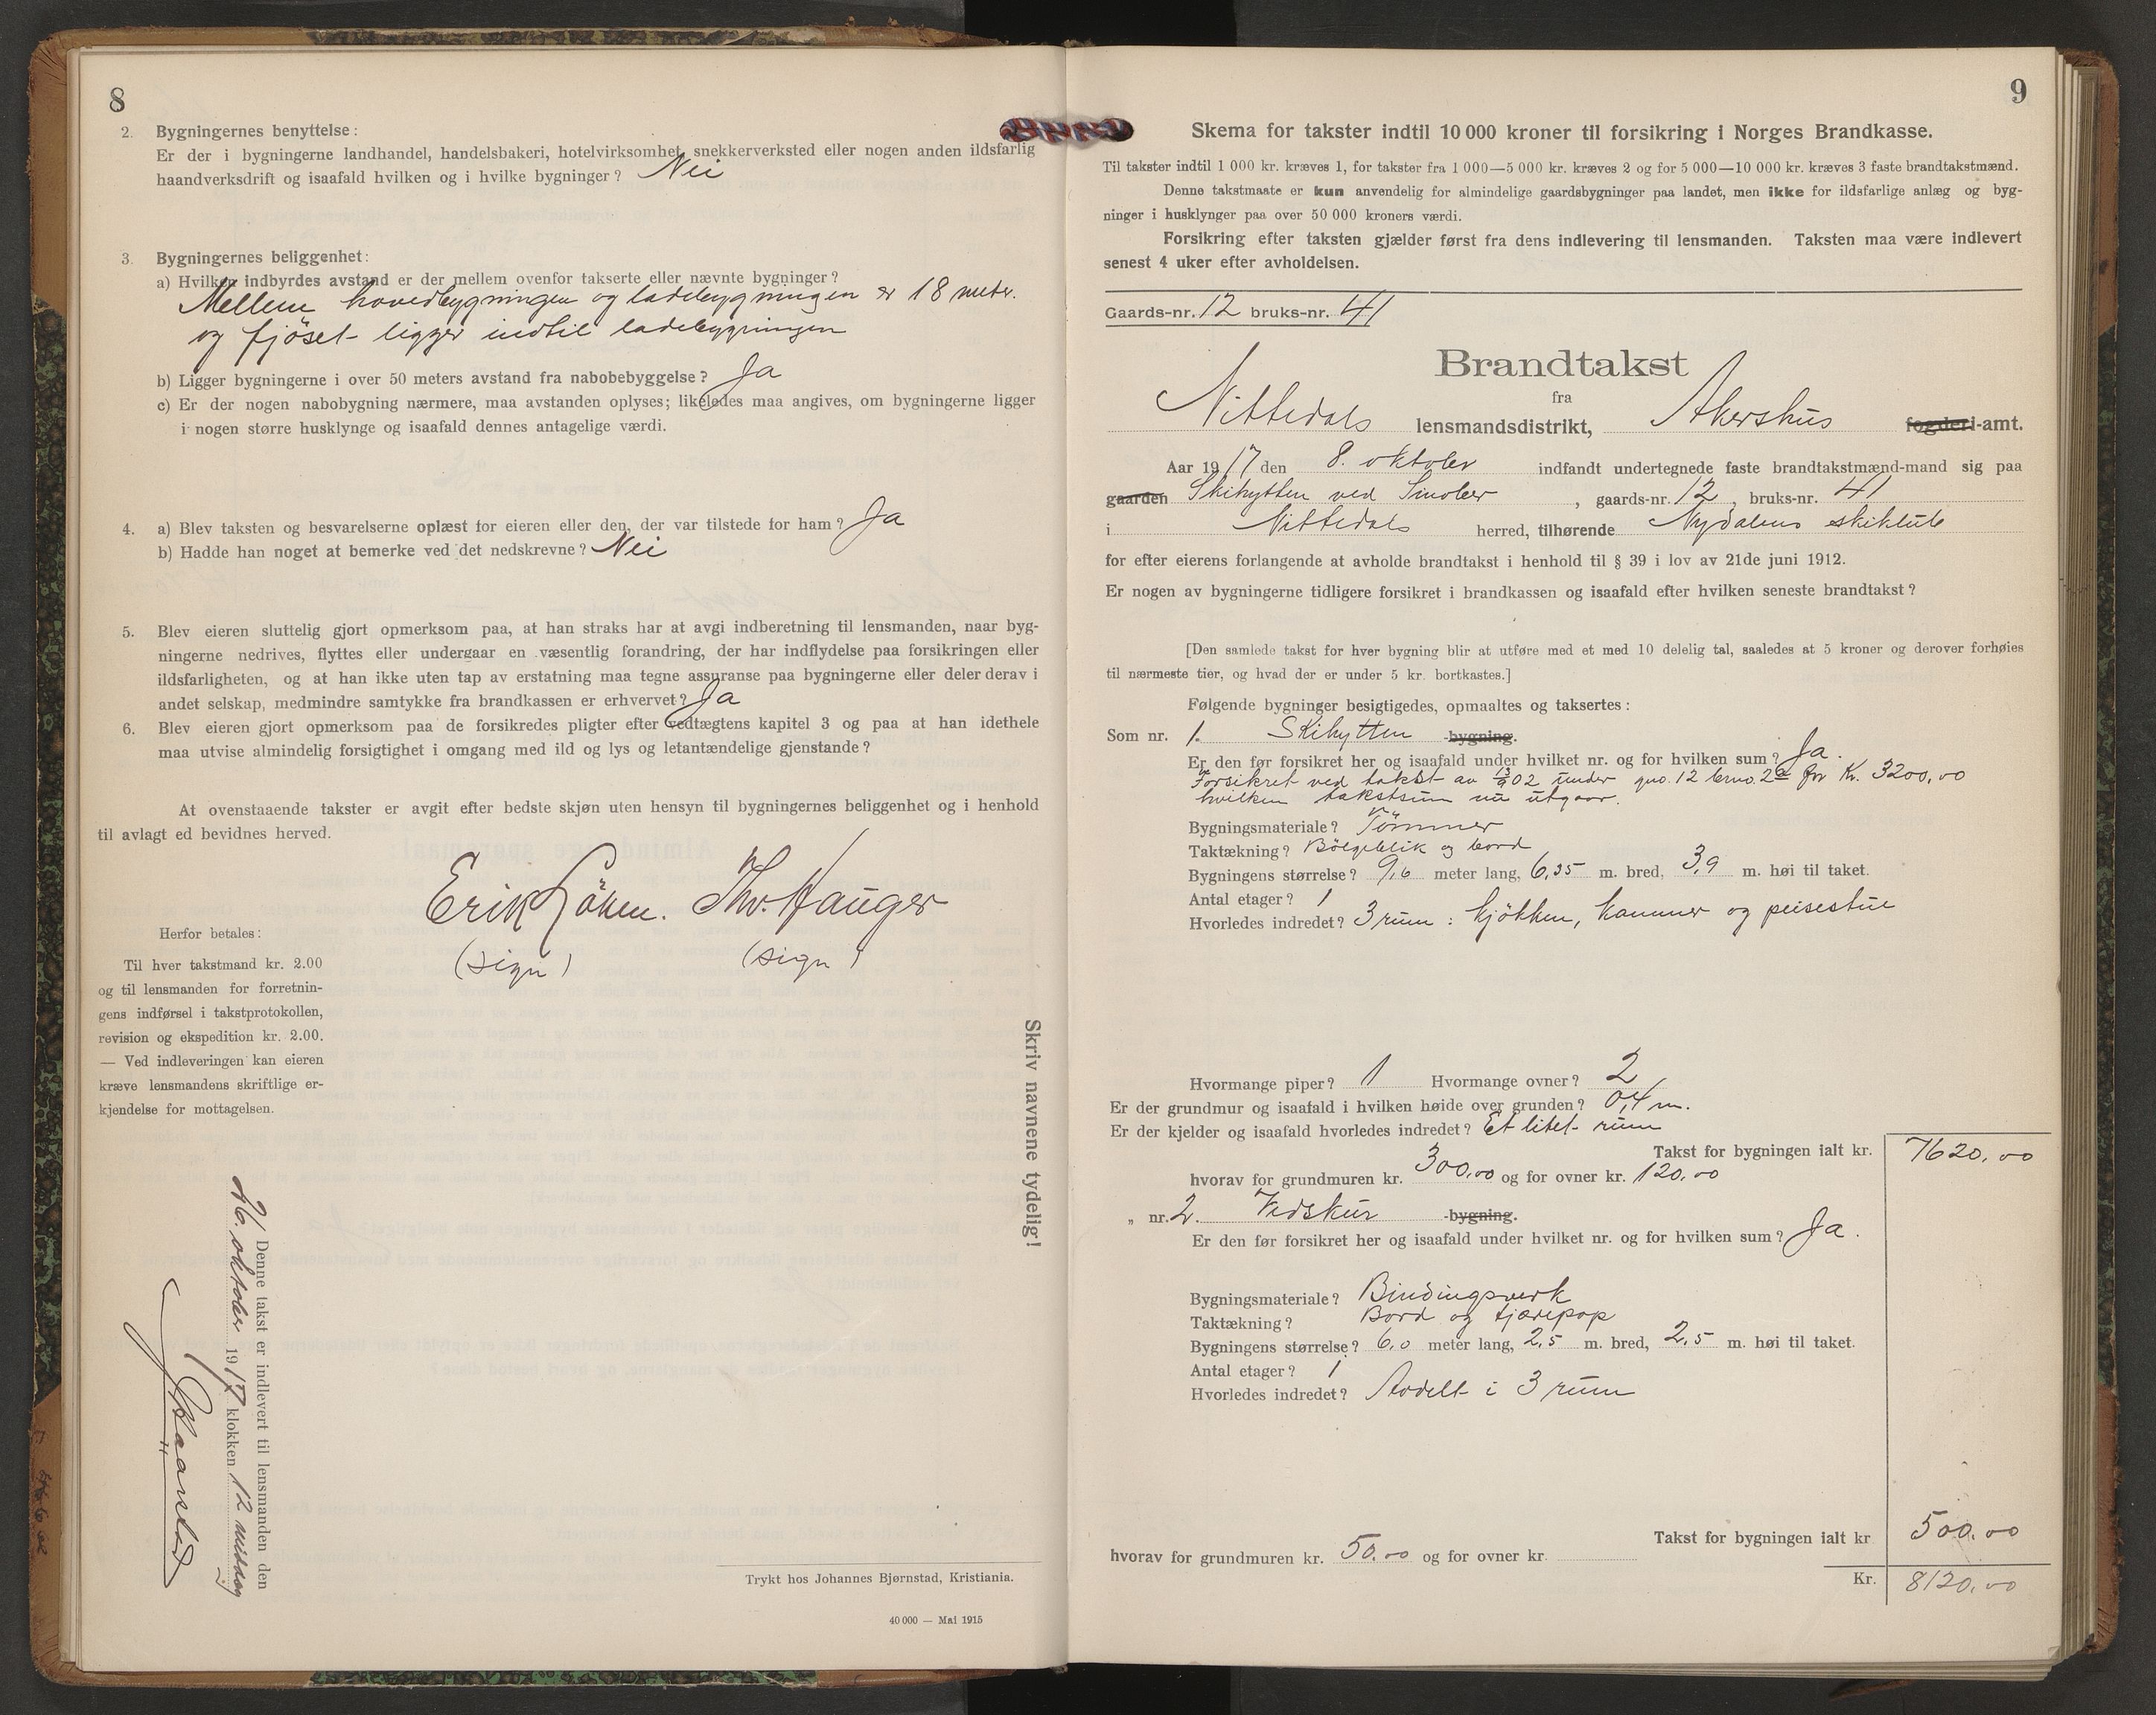 8
2. Bygningernes benyttelse:
Er der i bygningerne landhandel, handelsbakeri, hotelvirksomhet, snekkerverksted eller nogen anden ildsfarlig
haandverksdrift og isaafald hvilken og i hvilke bygninger? Nei
3. Bygningernes beliggenhet:
a) Hvilken indbyrdes avstand er der mellem ovenfor takserte eller nævnte bygninger?
Mellem hovedbygningen og ladebygningen er 18 meter.
og fjöset ligger indtil ladebygningen
b) Ligger bygningerne i over 50 meters avstand fra nabobebyggelse? Ja
c) Er der nogen nabobygning nærmere, maa avstanden oplyses; likeledes maa angives, om bygningerne ligger
i nogen større husklynge og isaafald dennes antagelige værdi.
4. a) Blev taksten og besvarelserne oplæst for eieren eller den, der var tilstede for ham? Ja
b) Hadde han noget at bemerke ved det nedskrevne? Nei
5. Blev eieren sluttelig gjort opmerksom paa, at han straks har at avgi indberetning til lensmanden, naar byg-
ningerne nedrives, flyttes eller undergaar en væsentlig forandring, der har indflydelse paa forsikringen eller
ildsfarligheten, og at han ikke uten tap av erstatning maa tegne assuranse paa bygningerne eller deler derav i
andet selskap, medmindre samtykke fra brandkassen er erhvervet? Ja
6. Blev eieren gjort opmerksom paa de forsikredes pligter efter vedtægtens kapitel 3 og paa at han idethele
maa utvise almindelig forsigtighet i omgang med ild og lys og letantændelige gjenstande?
At ovenstaaende takster er avgit efter bedste skjøn uten hensyn til bygningernes beliggenhet og i henhold
til avlagt ed bevidnes herved.
Erik Söhen. Thv. Hauger
(sign) (sign)
Herfor betales:
Til hver takstmand kr. 2.00
og til lensmanden for forretnin-
gens indførsel i takstprotokollen,
revision og ekspedition kr. 2.00.
— Ved indleveringen kan eieren
kræve lensmandens skriftlige er-
kjendelse for mottagelsen.
Skriv navnene tydelig!
Denne takst er indlevert til lensmanden den
26. oktober 1917 klokken 12 middag
Trykt hos Johannes Bjørnstad, Kristiania.
40 000 — Mai 1915
9
Skema for takster indtil 10 000 kroner til forsikring i Norges Brandkasse.
Til takster indtil 1 000 kr. kræves 1, for takster fra 1 000—5 000 kr. kræves 2 og for 5 000—10 000 kr. kræves 3 faste brandtakstmænd.
Denne takstmaate er kun anvendelig for almindelige gaardsbygninger paa landet, men ikke for ildsfarlige anlæg og byg-
ninger i husklynger paa over 50 000 kroners værdi.
Forsikring efter taksten gjælder først fra dens indlevering til lensmanden. Taksten maa være indlevert
senest 4 uker efter avholdelsen.
Gaards-nr. 12 bruks-nr. 41
Brandtakst
fra
Nittedals lensmandsdistrikt, Akershus fogderi-amt.
Aar 1917 den 8. oktober indfandt undertegnede faste brandtakstmænd-mand sig paa
gaarden Skihytten ved Sinober, gaards-nr. 12, bruks-nr. 41
i Nittedals herred, tilhørende Nydalens skiklub
for efter eierens forlangende at avholde brandtakst i henhold til § 39 i lov av 21de juni 1912.
Er nogen av bygningerne tidligere forsikret i brandkassen og isaafald efter hvilken seneste brandtakst?
[Den samlede takst for hver bygning blir at utføre med et med 10 delelig tal, saaledes at 5 kroner og derover forhøies
til nærmeste tier, og hvad der er under 5 kr. bortkastes.]
Følgende bygninger besigtigedes, opmaaltes og taksertes:
Som nr. 1. Skihytten -bygning.
Er den før forsikret her og isaafald under hvilket nr. og for hvilken sum? Ja.
Forsikret ved takst av 13/9 02 under gno. 12 brno. 2a for Kr. 3200,00
hvilken takstsum nu utgaar.
Bygningsmateriale? Tömmer
Taktækning? Bölgeblik og bord
Bygningens størrelse? 9,6 meter lang, 6,35 m. bred, 3,9 m. høi til taket.
Antal etager? 1
Hvorledes indredet? 3 rum: kjökken, kammer og peisestue
Hvormange piper? 1 Hvormange ovner? 2
Er der grundmur og isaafald i hvilken høide over grunden? 0,4 m.
Er der kjelder og isaafald hvorledes indredet? Et litet rum
Takst for bygningen ialt kr. 7620,00
hvorav for grundmuren kr. 300,00 og for ovner kr. 120,00
„ nr. 2. Vedskur -bygning.
Er den før forsikret her og isaafald under hvilket nr. og for hvilken sum? Ja.
Bygningsmateriale? Bindingsverk
Taktækning? Bord og tjærepap
Bygningens størrelse? 6,0 meter lang, 2,5 m. bred, 2,5 m. høi til taket.
Antal etager? 1
Hvorledes indredet? Avdelt i 3 rum
Takst for bygningen ialt kr 500,00
hvorav for grundmuren kr. 50,00 og for ovner kr.
Kr. 8120,00